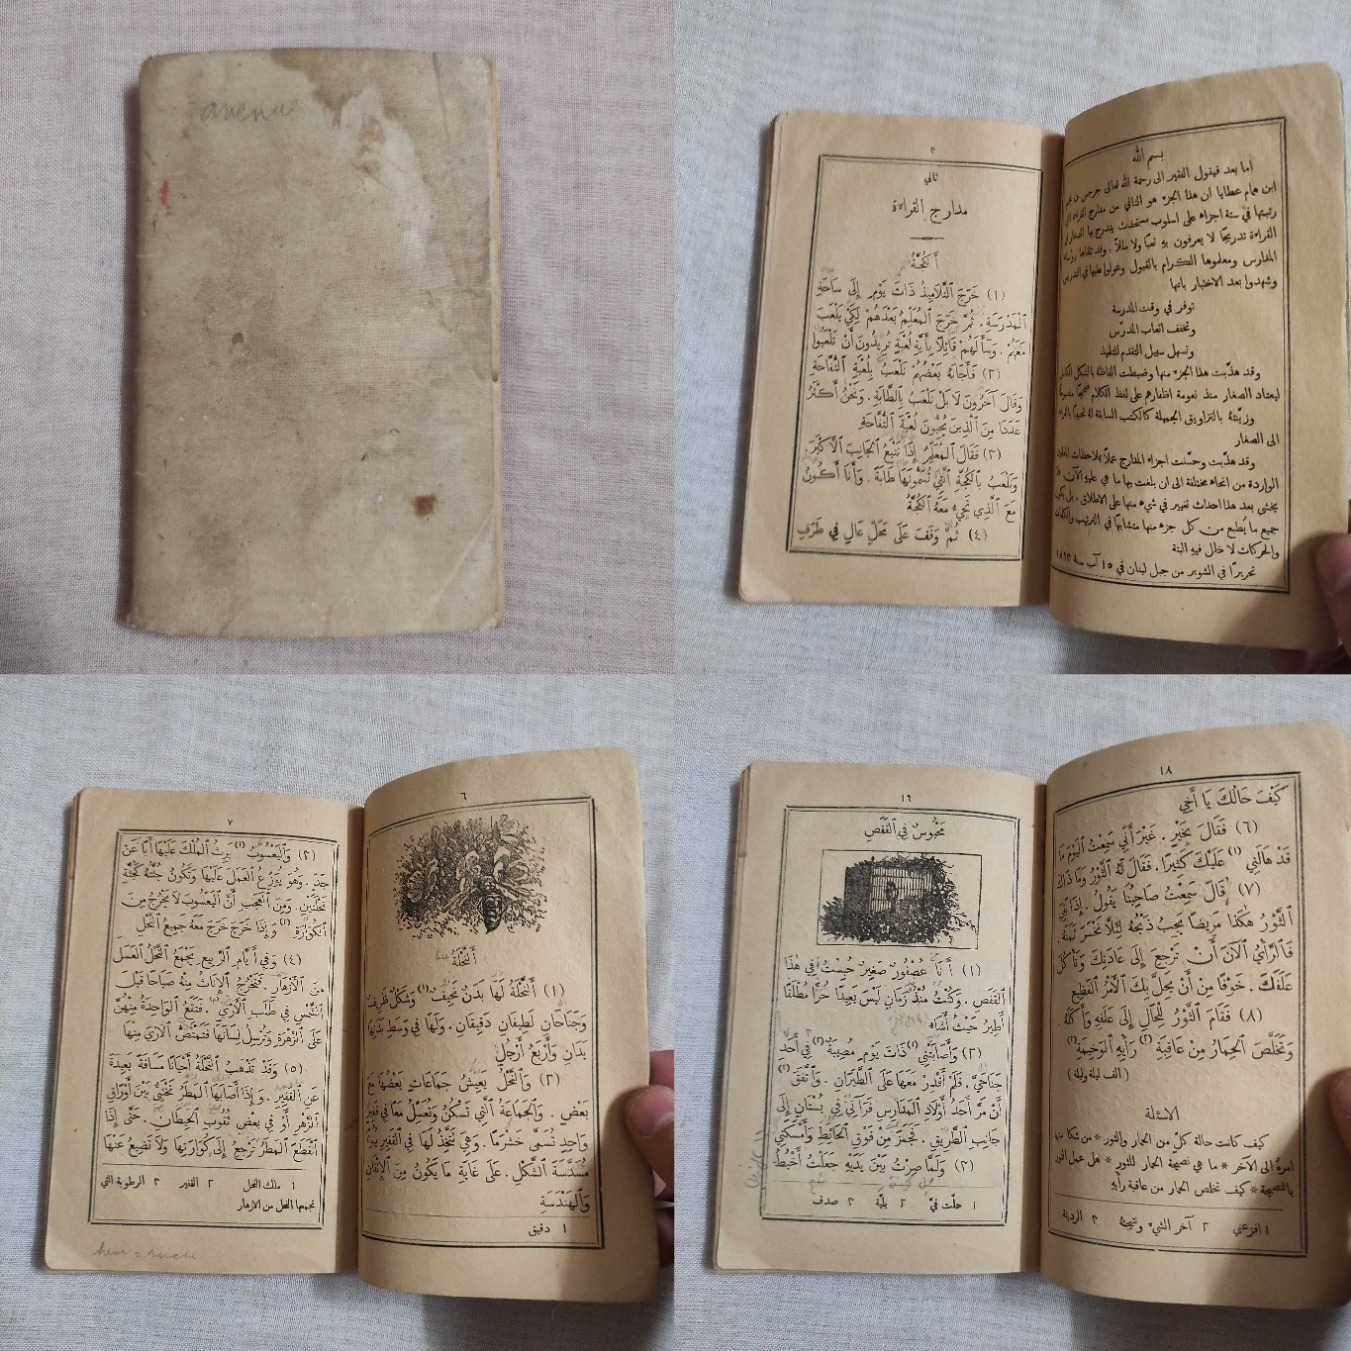 avenue
بسم الله
اما بعد فيقول الفقير الى رحمة الله تعالى جرجس بن
ابن همام عطايا ان هذا الجزء هو الثاني من مدارج القراءة التي
رتبتها في ستة اجزاء على اسلوب مستحدث يتدرج بها الصغار في
القراءة تدريجًا لا يعرفون به تعبًا ولا ملالًا . وقد تلقاها رؤساء
المدارس ومعلموها الكرام بالقبول وعولوا عليها في التدريس
وشهدوا بعد الاختبار بانها
توفر في وقت المدرسة
وتخفف اتعاب المدرّس
وتسهل سبيل التقدم للتلميذ
وقد هذّبت هذا الجزء منها وضبطت الفاظه بالشكل الكامل
ليعتاد الصغار منذ نعومة اظفارهم على لفظ الكلام صحيحًا مضبوطًا
وزيّنته بالتزاويق الجميلة كالكتب السابقة له تحبيبًا بالقراءة
الى الصغار
وقد هذّبت وحسّنت اجزاء المدارج عملًا بملاحظات
الواردة من انحاء مختلفة الى ان بلغت بها ما هي عليه الآن
يخشى بعد هذا احداث تغيير في شيء منها على الاطلاق . بل يكون
جميع ما يُطبع من كل جزء منها متشابهًا في الترتيب والكلمات
والحركات لا خلل فيه البتة
تحريرًا في الشوير من جبل لبنان في ١٥ آب سنة
٣
ثاني
مدارج القراءة
أَلْكُجَّةُ
(١) خَرَجَ ٱلتَّلَامِيذُ ذَاتَ يَوْمٍ إِلَى سَاحَةِ
ٱلْمَدْرَسَةِ . ثُمَّ خَرَجَ ٱلْمُعَلِّمُ بَعْدَهُمْ لِكَيْ يَلْعَبَ
مَعَهُمْ . وَسَأَلَهُمْ قَائِلًا بِأَيَّةِ لُعْبَةٍ تُرِيدُونَ أَنْ تَلْعَبُوا
(٢) فَأَجَابَهُ بَعْضُهُمْ نَلْعَبُ بِلُعْبَةِ ٱلتُّفَّاحَةِ
وَقَالَ آخَرُونَ لَا بَلْ نَلْعَبُ بِٱلطَّابَةِ . وَنَحْنُ أَكْثَرُ
عَدَدًا مِنَ ٱلَّذِينَ يُحِبُّونَ لُعْبَةَ ٱلتُّفَّاحَةِ
(٣) فَقَالَ ٱلْمُعَلِّمُ إِذًا نَتْبَعُ ٱلْجَانِبَ ٱلْأَكْبَرَ
وَنَلْعَبُ بِٱلْكُجَّةِ ٱلَّتِي تُسَمُّونَهَا طَابَةً . وَأَنَا أَكُونُ
مَعَ ٱلَّذِي تَجِيءُ مَعَهُ ٱلْكُجَّةُ
(٤) ثُمَّ وَقَفَ عَلَى مَحَلٍّ عَالٍ فِي طَرَفِ
٦
أَلنَّحْلَةُ
(١) أَلنَّحْلَةُ لَهَا بَدَنٌ نَحِيفٌ (١) وَشَكْلٌ ظَرِيفٌ
وَجَنَاحَانِ لَطِيفَانِ دَقِيقَانِ . وَلَهَا فِي وَسَطِ بَدَنِهَا
يَدَانِ وَأَرْبَعُ أَرْجُلٍ
(٢) وَٱلنَّحْلُ يَعِيشُ جَمَاعَاتٍ بَعْضُهَا مَعَ
بَعْضٍ . وَٱلْجَمَاعَةُ ٱلَّتِي تَسْكُنُ وَتُعَسِّلُ مَعًا فِي قَفِيرٍ
وَاحِدٍ تُسَمَّى خَشْرَمًا . وَهِيَ تَتَّخِذُ لَهَا فِي ٱلْقَفِيرِ
مُسَدَّسَةَ ٱلشَّكْلِ . عَلَى غَايَةِ مَا يَكُونُ مِنَ ٱلْإِتْقَانِ
وَٱلْهَنْدَسَةِ
١ دقيق
٧
(٣) وَٱلْيَعْسُوبُ (١) يَرِثُ ٱلْمُلْكَ عَلَيْهَا أَبًا عَنْ
جَدٍّ . وَهُوَ يُوَزِّعُ ٱلْعَمَلَ عَلَيْهَا وَتَكُونُ جُثَّتُهُ كَجُثَّةِ
نَحْلَتَيْنِ . وَمِنَ ٱلْعَجَبِ أَنَّ ٱلْيَعْسُوبَ لَا يَخْرُجُ مِنَ
ٱلْكُوَارَةِ (٢) وَإِذَا خَرَجَ خَرَجَ مَعَهُ جَمِيعُ ٱلنَّحْلِ
(٤) وَفِي أَيَّامِ ٱلرَّبِيعِ يَجْمَعُ ٱلنَّحْلُ ٱلْعَسَلَ
مِنَ ٱلْأَزْهَارِ . فَتَخْرُجُ ٱلْإِنَاثُ مِنْهُ صَبَاحًا قَبْلَ
ٱلشَّمْسِ فِي طَلَبِ ٱلْأَرْيِ (٣) . فَتَقَعُ ٱلْوَاحِدَةُ مِنْهُنَّ
عَلَى ٱلزَّهْرَةِ وَتُرْسِلُ لِسَانَهَا فَتَمْتَصُّ ٱلْأَرْيَ مِنْهَا
(٥) وَقَدْ تَذْهَبُ ٱلنَّحْلَةُ أَحْيَانًا مَسَافَةً بَعِيدَةً
عَنِ ٱلْقَفِيرِ . وَإِذَا أَصَابَهَا ٱلْمَطَرُ تَخْتَبِئُ بَيْنَ أَوْرَاقِ
ٱلزَّهْرِ أَوْ فِي بَعْضِ ثُقُوبِ ٱلْحِيطَانِ . حَتَّى إِذَا
ٱنْقَطَعَ ٱلْمَطَرُ تَرْجِعُ إِلَى كُوَارَتِهَا وَلَا تَضِيعُ عَنْهَا
١ ملك النحل ٢ القفير ٣ الرطوبة التي
تجمعها النحل من الازهار
١٨
كَيْفَ حَالُكَ يَا أَخِي
(٦) فَقَالَ بِخَيْرٍ . غَيْرَ أَنِّي سَمِعْتُ ٱلْيَوْمَ مَا
قَدْ هَالَنِي (١) عَلَيْكَ كَثِيرًا . فَقَالَ لَهُ ٱلثَّوْرُ وَمَا ذَاكَ
(٧) قَالَ سَمِعْتُ صَاحِبَنَا يَقُولُ . إِذَا بَقِيَ
ٱلثَّوْرُ هٰكَذَا مَرِيضًا يَجِبُ ذَبْحُهُ لِئَلَّا نَخْسَرَ ثَمَنَهُ .
فَٱلرَّأْيُ ٱلْآنَ أَنْ تَرْجِعَ إِلَى عَادَتِكَ وَتَأْكُلَ
عَلَفَكَ . خَوْفًا مِنْ أَنْ يَحِلَّ بِكَ ٱلْأَمْرُ ٱلْفَظِيعُ
(٨) فَقَامَ ٱلثَّوْرُ لِلْحَالِ إِلَى عَلَفِهِ وَأَكَلَهُ .
وَتَخَلَّصَ ٱلْحِمَارُ مِنْ عَاقِبَةِ (٢) رَأْيِهِ ٱلْوَخِيمَةِ (٣)
( الف ليلة وليلة )
الاسئلة
كيف كانت حالة كلّ من الحمار والثور * من شكا منها
امرهُ الى الآخر * ما هي نصيحة الحمار للثور * هل عمل الثور
بالنصيحة * كيف تخلص الحمار من عاقبة رأيه
١ افزعني ٢ آخر الشيء ونتيجته ٣ الرديئة
١٩
مَحْبُوسٌ فِي ٱلْقَفَصِ
(١) أَنَا عُصْفُورٌ صَغِيرٌ حُبِسْتُ فِي هٰذَا
ٱلْقَفَصِ . وَكُنْتُ مُنْذُ زَمَانٍ لَيْسَ بَعِيدًا حُرًّا مُطْلَقًا
أَطِيرُ حَيْثُ أَشَاءُ
(٢) وَأَصَابَتْنِي (١) ذَاتَ يَوْمٍ مُصِيبَةٌ (٢) فِي أَحَدِ
جَنَاحَيَّ . فَلَمْ أَقْدِرْ مَعَهَا عَلَى ٱلطَّيَرَانِ . وَٱتَّفَقَ (٣)
أَنْ مَرَّ أَحَدُ أَوْلَادِ ٱلْمَدَارِسِ فَرَآنِي فِي بُسْتَانٍ إِلَى
جَانِبِ ٱلطَّرِيقِ . فَجَمَزَ مِنْ فَوْقِ ٱلْحَائِطِ وَأَمْسَكَنِي
(٣) وَلَمَّا صِرْتُ بَيْنَ يَدَيْهِ جَعَلْتُ أَخْبِطُ
١ حلّت فيّ ٢ بليّة ٣ صدف